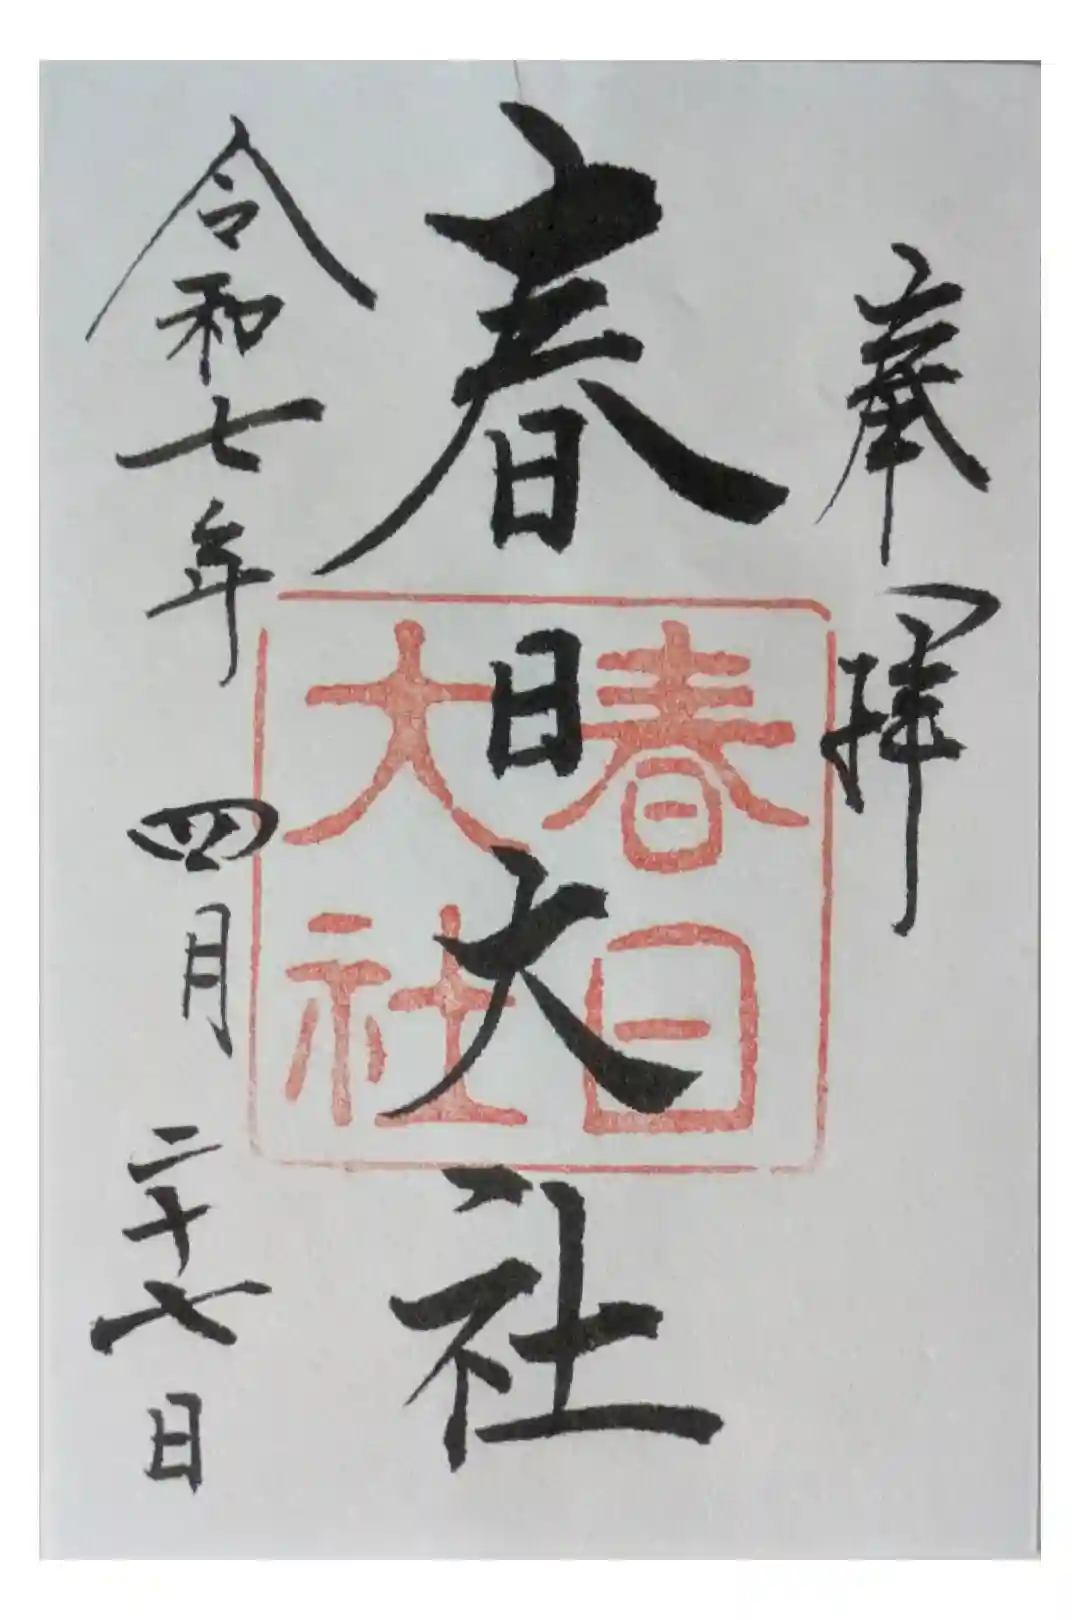 奉拝
春日大社
春日
大社
令和七年四月二十七日